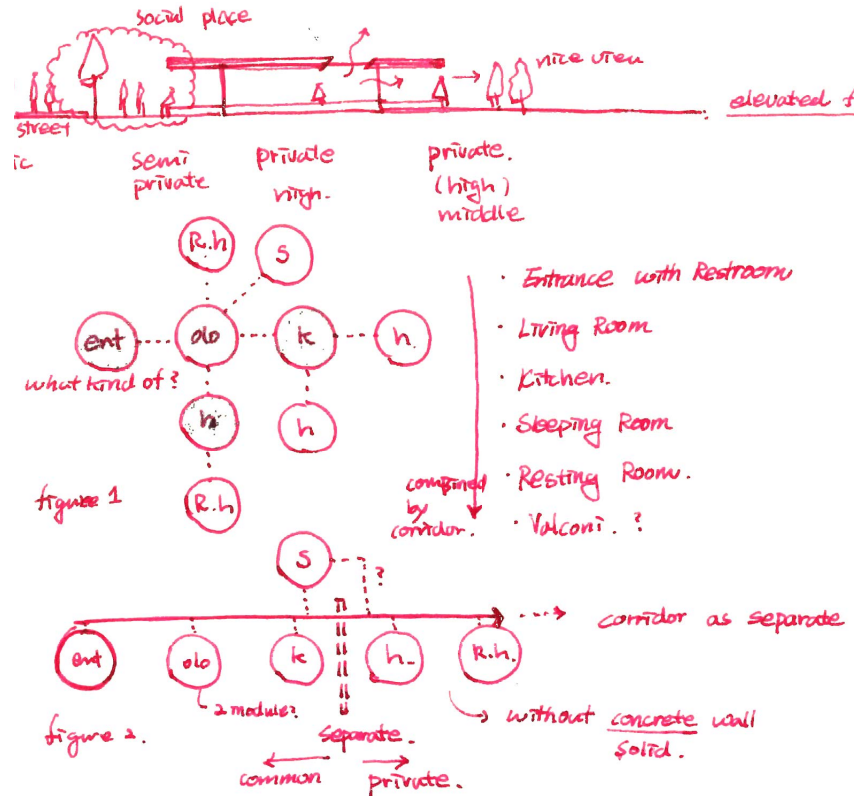 social place
nice view
elevated f
street
ic
semi
private
private
high.
private.
(high)
middle
R.h
S
ent
olo
k
h
what kind of?
h
h
R.h
figure 1
· Entrance with Restroom
· Living Room
· Kitchen.
· Sleeping Room
· Resting Room.
· Valconi. ?
combined
by
corridor.
S
?
corridor as separate
ent
olo
k
h
R.h.
2 module?
figure 2.
separate.
common
private.
without concrete wall
solid.